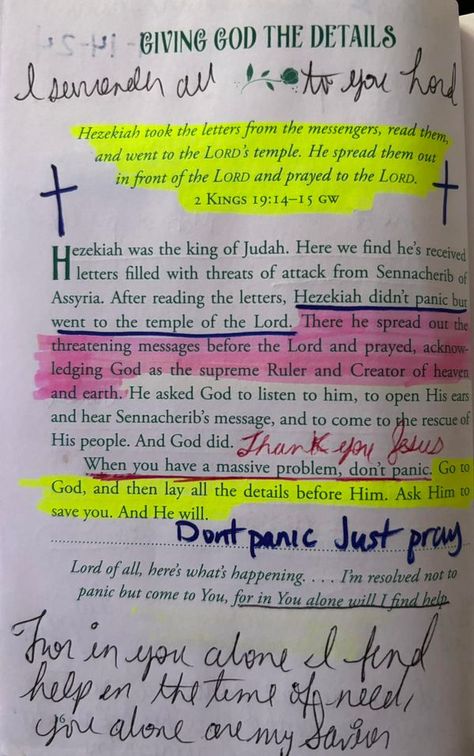 GIVING GOD THE DETAILS
I surrender all to you Lord
Hezekiah took the letters from the messengers, read them,
and went to the LORD's temple. He spread them out
in front of the LORD and prayed to the LORD.
2 KINGS 19:14–15 GW
Hezekiah was the king of Judah. Here we find he's received
letters filled with threats of attack from Sennacherib of
Assyria. After reading the letters, Hezekiah didn't panic but
went to the temple of the Lord. There he spread out the
threatening messages before the Lord and prayed, acknow-
ledging God as the supreme Ruler and Creator of heaven
and earth. He asked God to listen to him, to open His ears
and hear Sennacherib's message, and to come to the rescue of
His people. And God did. Thank you Jesus
When you have a massive problem, don't panic. Go to
God, and then lay all the details before Him. Ask Him to
save you. And He will.
Dont panic Just pray
Lord of all, here's what's happening. . . . I'm resolved not to
panic but come to You, for in You alone will I find help.
For in you alone I find
help in the time of need,
you alone are my Savior